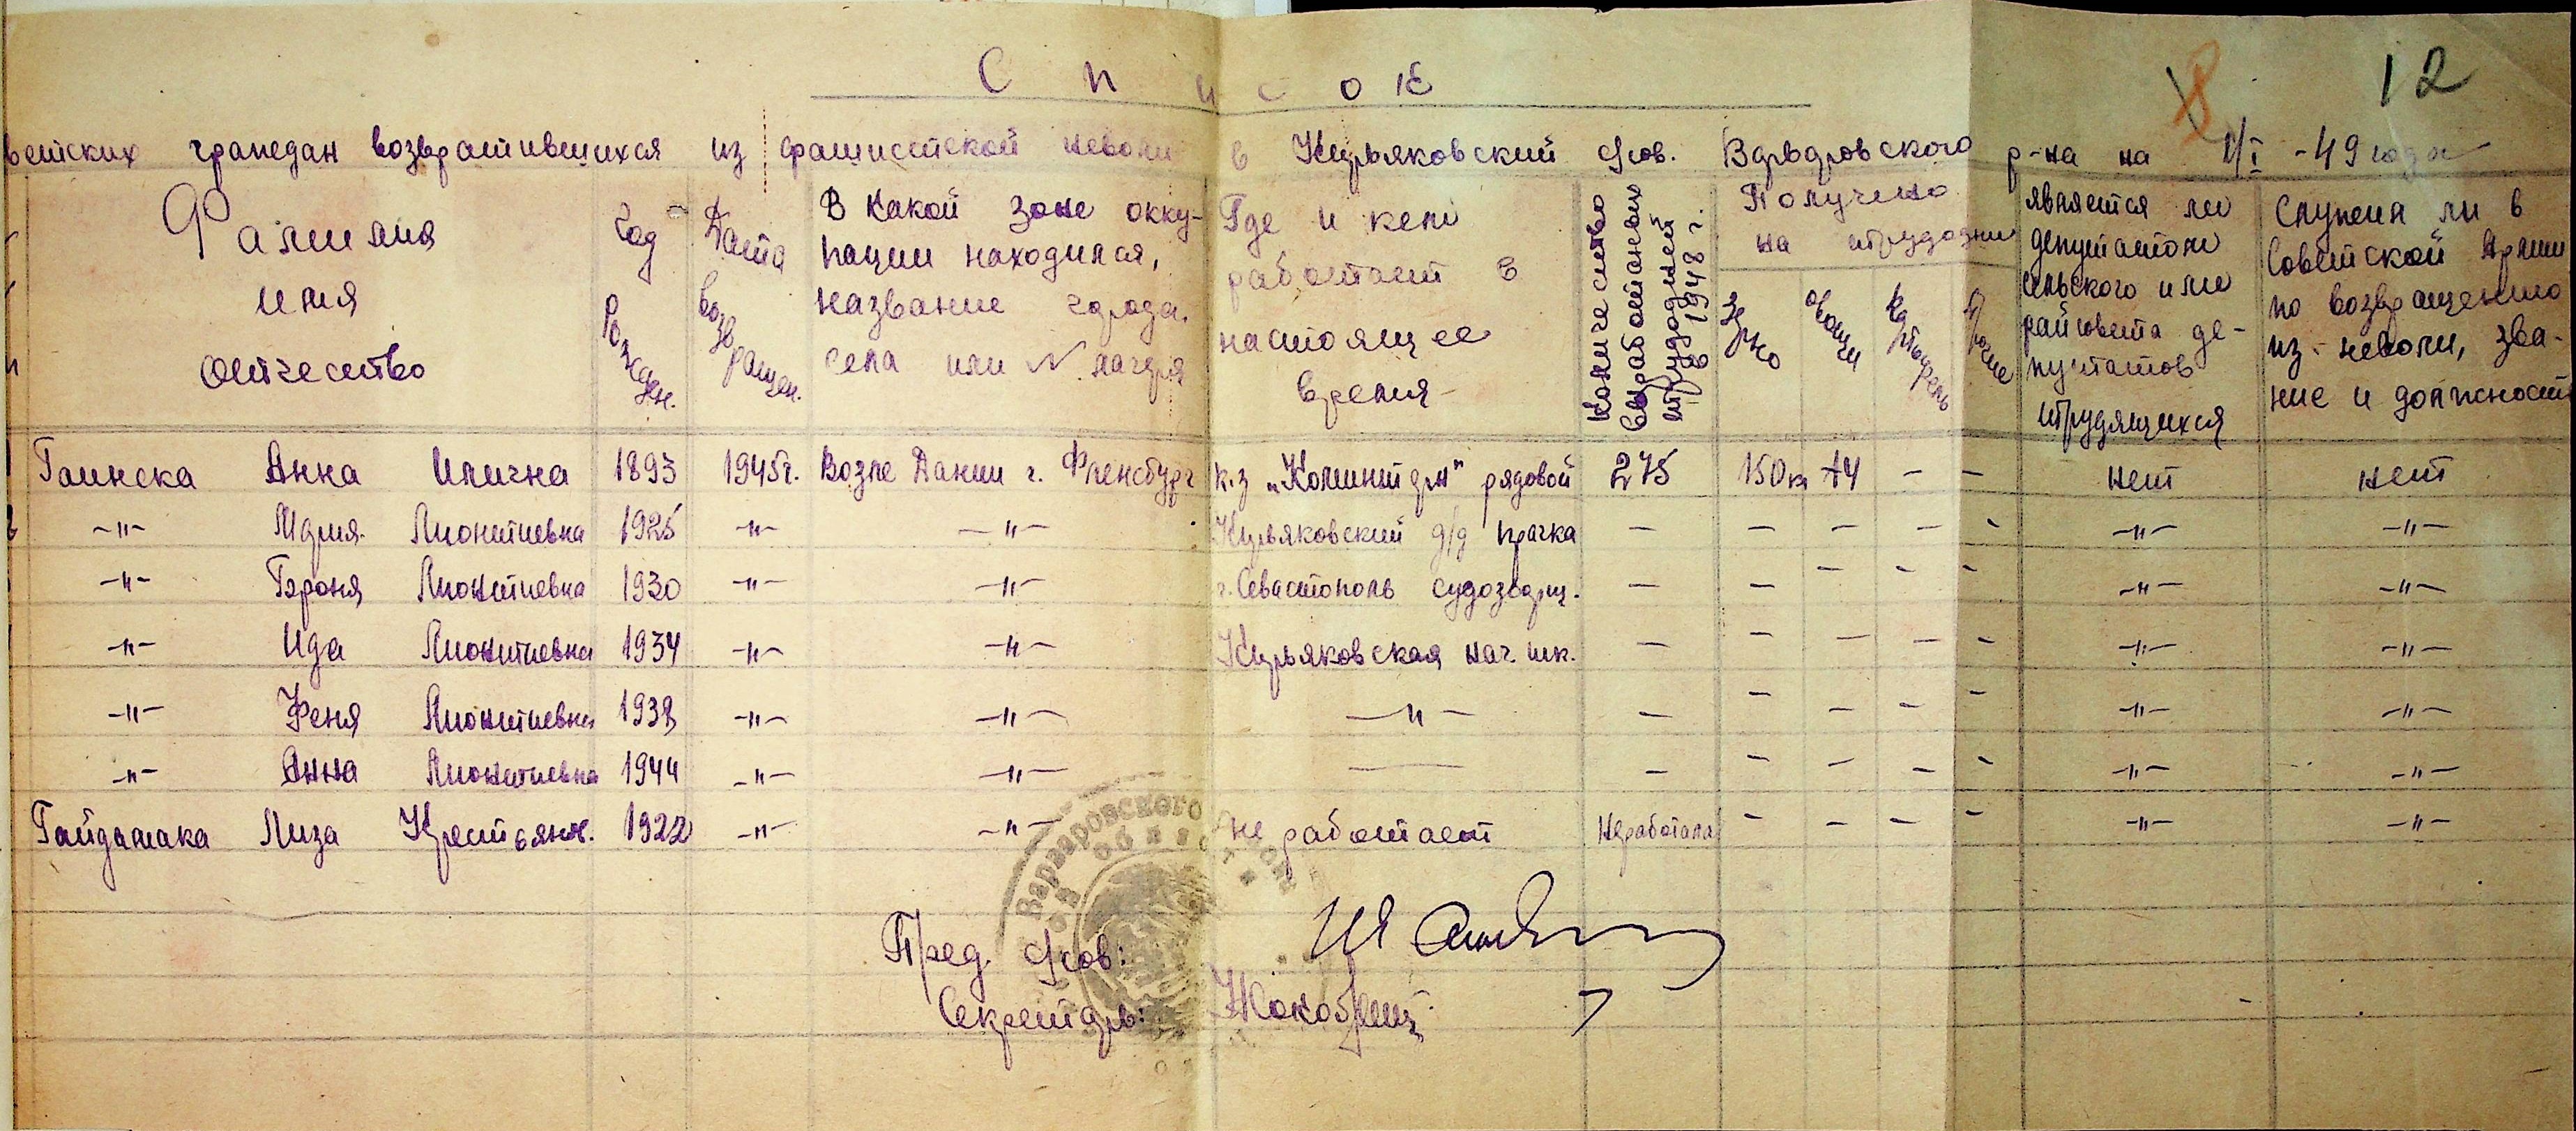 12
Список
ветских граждан возвратившихся из фашистской неволи в Кирьяковский с/сов. Варваровского р-на на 1/I -49 года
Фамилия имя отчество
Год рожден.
Дата возвращен.
В какой зоне оккупации находился, название города, села или N лагеря
Где и кем работает в настоящее время
Количество выработанных трудодней в 1948 г.
Получено на трудодни
Зерно
овощи
Картофель
Прочие
является ли депутатом сельского или райсовета депутатов трудящихся
Служил ли в Советской Армии по возвращению из неволи, звание и должность
Галинска Анна Илична 1893 1945г. Возле Дании г. Фленсбург к.з „Коминтерн" рядовой 275 150кг 14 - - нет нет
-"- Мария Лионтиевна 1925 -"- -"- Кирьяковский д/д прачка - - - - - -"- -"-
-"- Броня Лионтиевна 1930 -"- -"- г. Севастополь - - - - - -"- -"-
-"- Ида Лионтиевна 1934 -"- -"- Кирьяковская нач. шк. - - - - - -"- -"-
-"- Феня Лионтиевна 1938 -"- -"- -"- - - - - - -"- -"-
-"- Анна Лионтиевна 1944 -"- -"- — - - - - - -"- -"-
Гайдамака Лиза Крестьянт. 1922 -"- -"- не работает не работала - - - - -"- -"-
Варваровского
Пред. с/сов:
Секретарь: